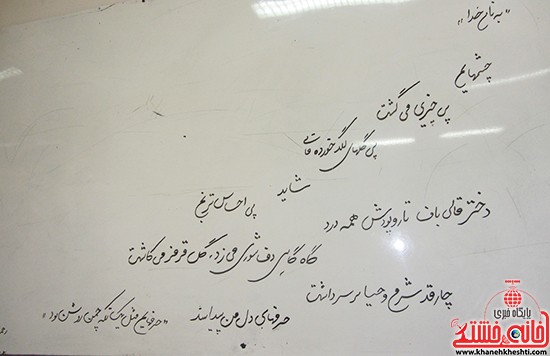 "به نام خدا"
چشمهایم
پی چیزی می گشت
پی گلهای لگد خورده قالی
شاید
پی احساس ترنج
دختر قالی باف تار و پودش همه درد
گاه گاهی دف شوری می زد، گل قرمز می کاشت
چارقد شرم و حیا بر سر داشت
حرفهای دل من پیدا بند
"حرفهایم مثل یک تکه چمن روشن بود"
پایگاه خبری
خانه خشتی
www.khanehkheshti.com